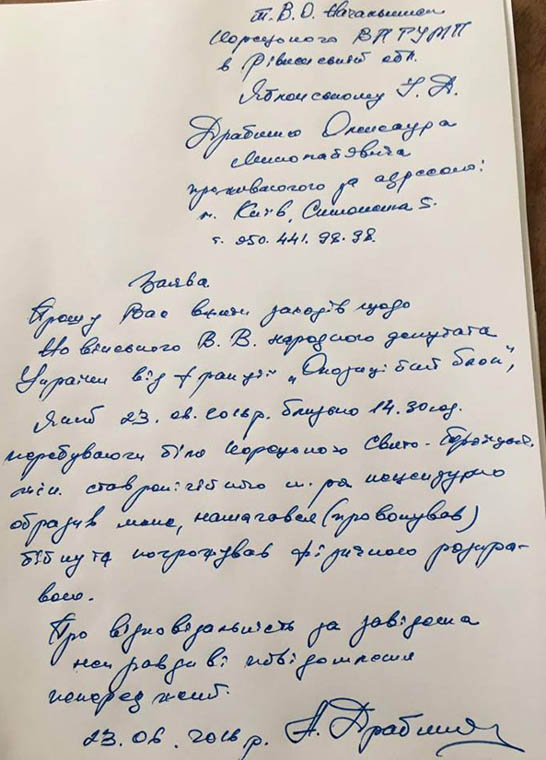 Т. В. О. Начальника
Корецького ВП ГУНП
в Рівненській обл.
Яблонському
Драбинко Олександра
Миколайовича
проживаючого за адресою:
м. Київ, 5.
т. 050. 441. 92. 98
Заява
Прошу Вас вжити заходів щодо
В. В. народного депутата
України від фракції „Опозиційний блок",
Який 23. 06. 2016 р. близько 14.30 год.
перебуваючи біля Корецького Свято-Троїцьк.
м-ря нецензурно
образив мене, намагався (провокував)
бійку та погрожував фізичною розпра-
вою.
Про відповідальність за завідомо
неправдиві повідомлення
попереджений.
23. 06. 2016 р. А. Драбинко